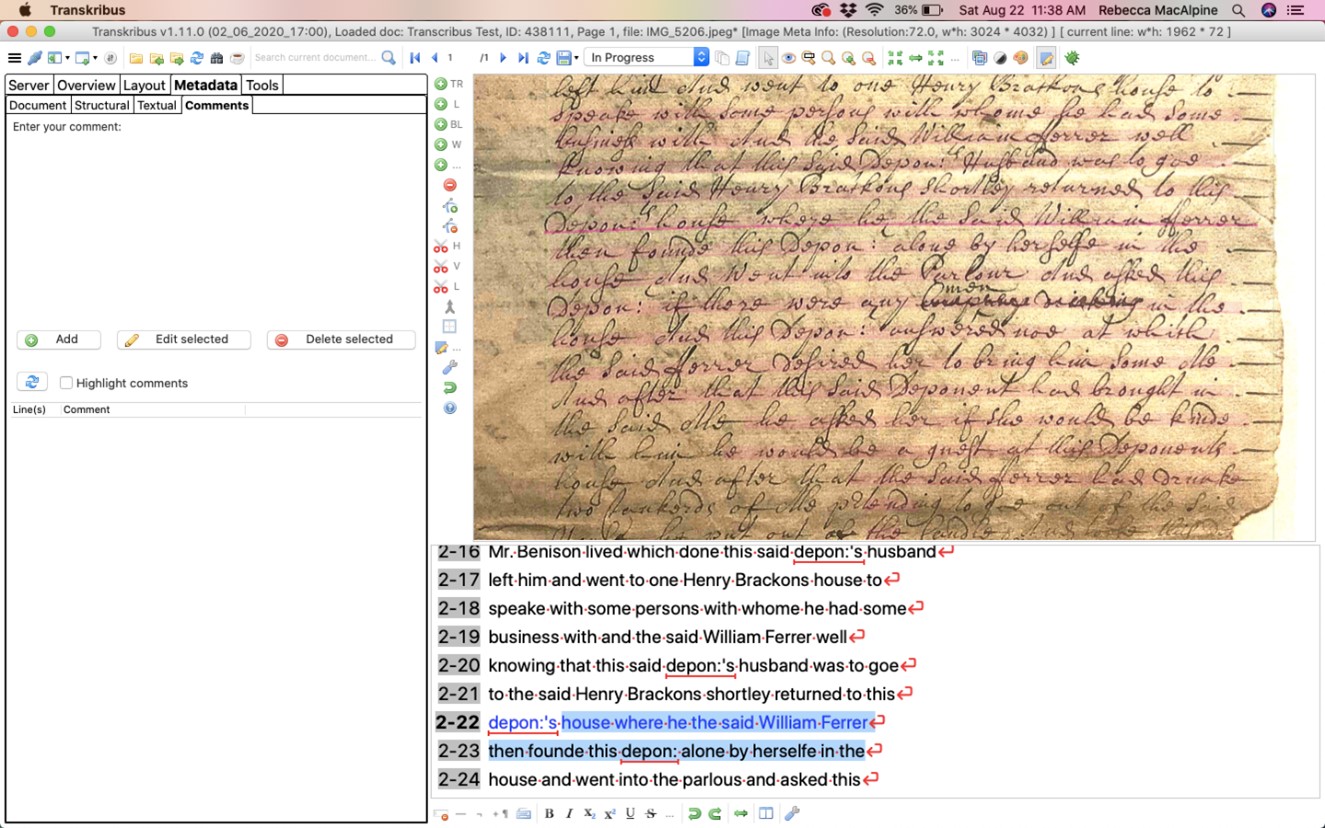 Transkribus
36%
Sat Aug 22 11:38 AM
Rebecca MacAlpine
Transkribus v1.11.0 (02_06_2020_17:00), Loaded doc: Transcribus Test, ID: 438111, Page 1, file: IMG_5206.jpeg* [Image Meta Info: (Resolution:72.0, w*h: 3024 * 4032) ] [ current line: w*h: 1962 * 72 ]
Search current document...
1
/1
In Progress
...
Server
Overview
Layout
Metadata
Tools
Document
Structural
Textual
Comments
Enter your comment:
Add
Edit selected
Delete selected
Highlight comments
Line(s)
Comment
TR
L
BL
W
...
H
V
L
...
left him And went to one Henry Brackons house to
speake with some persons with whome he had some
business with And the said William Ferrer well
knowing that this said Depon:ts Husband was to goe
to the said Henry Brackons shortley returned to this
Depon:ts house where he the said William Ferrer
then founde this Depon: alone by herselfe in the
house And went into the Parlour And asked this
Depon: if there were any men in the
house And this Depon: answered noe at which
the said Ferrer desired her to bring him some Ale
And after that this said Deponent had brought in
the said Ale he asked her if she would be kinde
with him he would be a guest at this Deponents
house And after that the said Ferrer had drunke
two tankerds of Ale pretending to goe out of the said
he put out the Candle And
2-16 Mr. Benison lived which done this said depon:'s husband
2-17 left him and went to one Henry Brackons house to
2-18 speake with some persons with whome he had some
2-19 business with and the said William Ferrer well
2-20 knowing that this said depon:'s husband was to goe
2-21 to the said Henry Brackons shortley returned to this
2-22 depon:'s house where he the said William Ferrer
2-23 then founde this depon: alone by herselfe in the
2-24 house and went into the parlous and asked this
B I X₂ X² U S ...